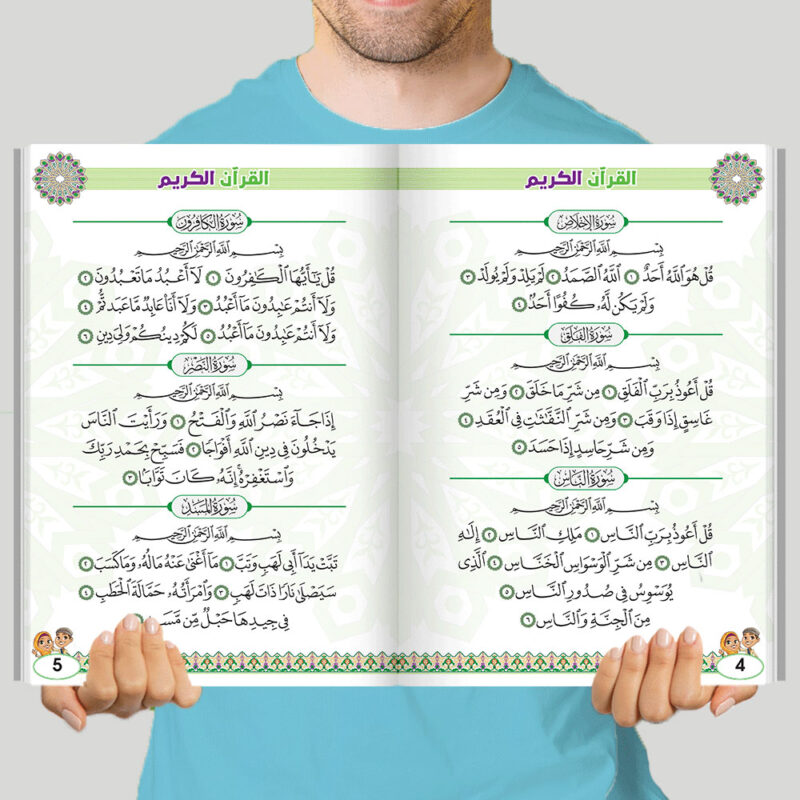 القرآن الكريم
سُورَةُ الإِخْلَاصِ
بِسْمِ اللَّهِ الرَّحْمَٰنِ الرَّحِيمِ
قُلْ هُوَ اللَّهُ أَحَدٌ ١ اللَّهُ الصَّمَدُ ٢ لَمْ يَلِدْ وَلَمْ يُولَدْ ٣
وَلَمْ يَكُن لَّهُ كُفُوًا أَحَدٌ ٤
سُورَةُ الفَلَقِ
بِسْمِ اللَّهِ الرَّحْمَٰنِ الرَّحِيمِ
قُلْ أَعُوذُ بِرَبِّ الْفَلَقِ ١ مِن شَرِّ مَا خَلَقَ ٢ وَمِن شَرِّ
غَاسِقٍ إِذَا وَقَبَ ٣ وَمِن شَرِّ النَّفَّٰثَٰتِ فِي الْعُقَدِ ٤
وَمِن شَرِّ حَاسِدٍ إِذَا حَسَدَ ٥
سُورَةُ النَّاسِ
بِسْمِ اللَّهِ الرَّحْمَٰنِ الرَّحِيمِ
قُلْ أَعُوذُ بِرَبِّ النَّاسِ ١ مَلِكِ النَّاسِ ٢ إِلَٰهِ
النَّاسِ ٣ مِن شَرِّ الْوَسْوَاسِ الْخَنَّاسِ ٤ الَّذِي
يُوَسْوِسُ فِي صُدُورِ النَّاسِ ٥
مِنَ الْجِنَّةِ وَالنَّاسِ ٦
4
القرآن الكريم
سُورَةُ الكَافِرُونَ
بِسْمِ اللَّهِ الرَّحْمَٰنِ الرَّحِيمِ
قُلْ يَٰأَيُّهَا الْكَٰفِرُونَ ١ لَا أَعْبُدُ مَا تَعْبُدُونَ ٢
وَلَا أَنتُمْ عَٰبِدُونَ مَا أَعْبُدُ ٣ وَلَا أَنَا عَابِدٌ مَّا عَبَدتُّمْ ٤
وَلَا أَنتُمْ عَٰبِدُونَ مَا أَعْبُدُ ٥ لَكُمْ دِينُكُمْ وَلِيَ دِينِ ٦
سُورَةُ النَّصْرِ
بِسْمِ اللَّهِ الرَّحْمَٰنِ الرَّحِيمِ
إِذَا جَآءَ نَصْرُ اللَّهِ وَالْفَتْحُ ١ وَرَأَيْتَ النَّاسَ
يَدْخُلُونَ فِي دِينِ اللَّهِ أَفْوَاجًا ٢ فَسَبِّحْ بِحَمْدِ رَبِّكَ
وَاسْتَغْفِرْهُ إِنَّهُ كَانَ تَوَّابًا ٣
سُورَةُ المَسَدِ
بِسْمِ اللَّهِ الرَّحْمَٰنِ الرَّحِيمِ
تَبَّتْ يَدَا أَبِي لَهَبٍ وَتَبَّ ١ مَا أَغْنَىٰ عَنْهُ مَالُهُ وَمَا كَسَبَ ٢
سَيَصْلَىٰ نَارًا ذَاتَ لَهَبٍ ٣ وَامْرَأَتُهُ حَمَّالَةَ الْحَطَبِ ٤
فِي جِيدِهَا حَبْلٌ مِّن
5